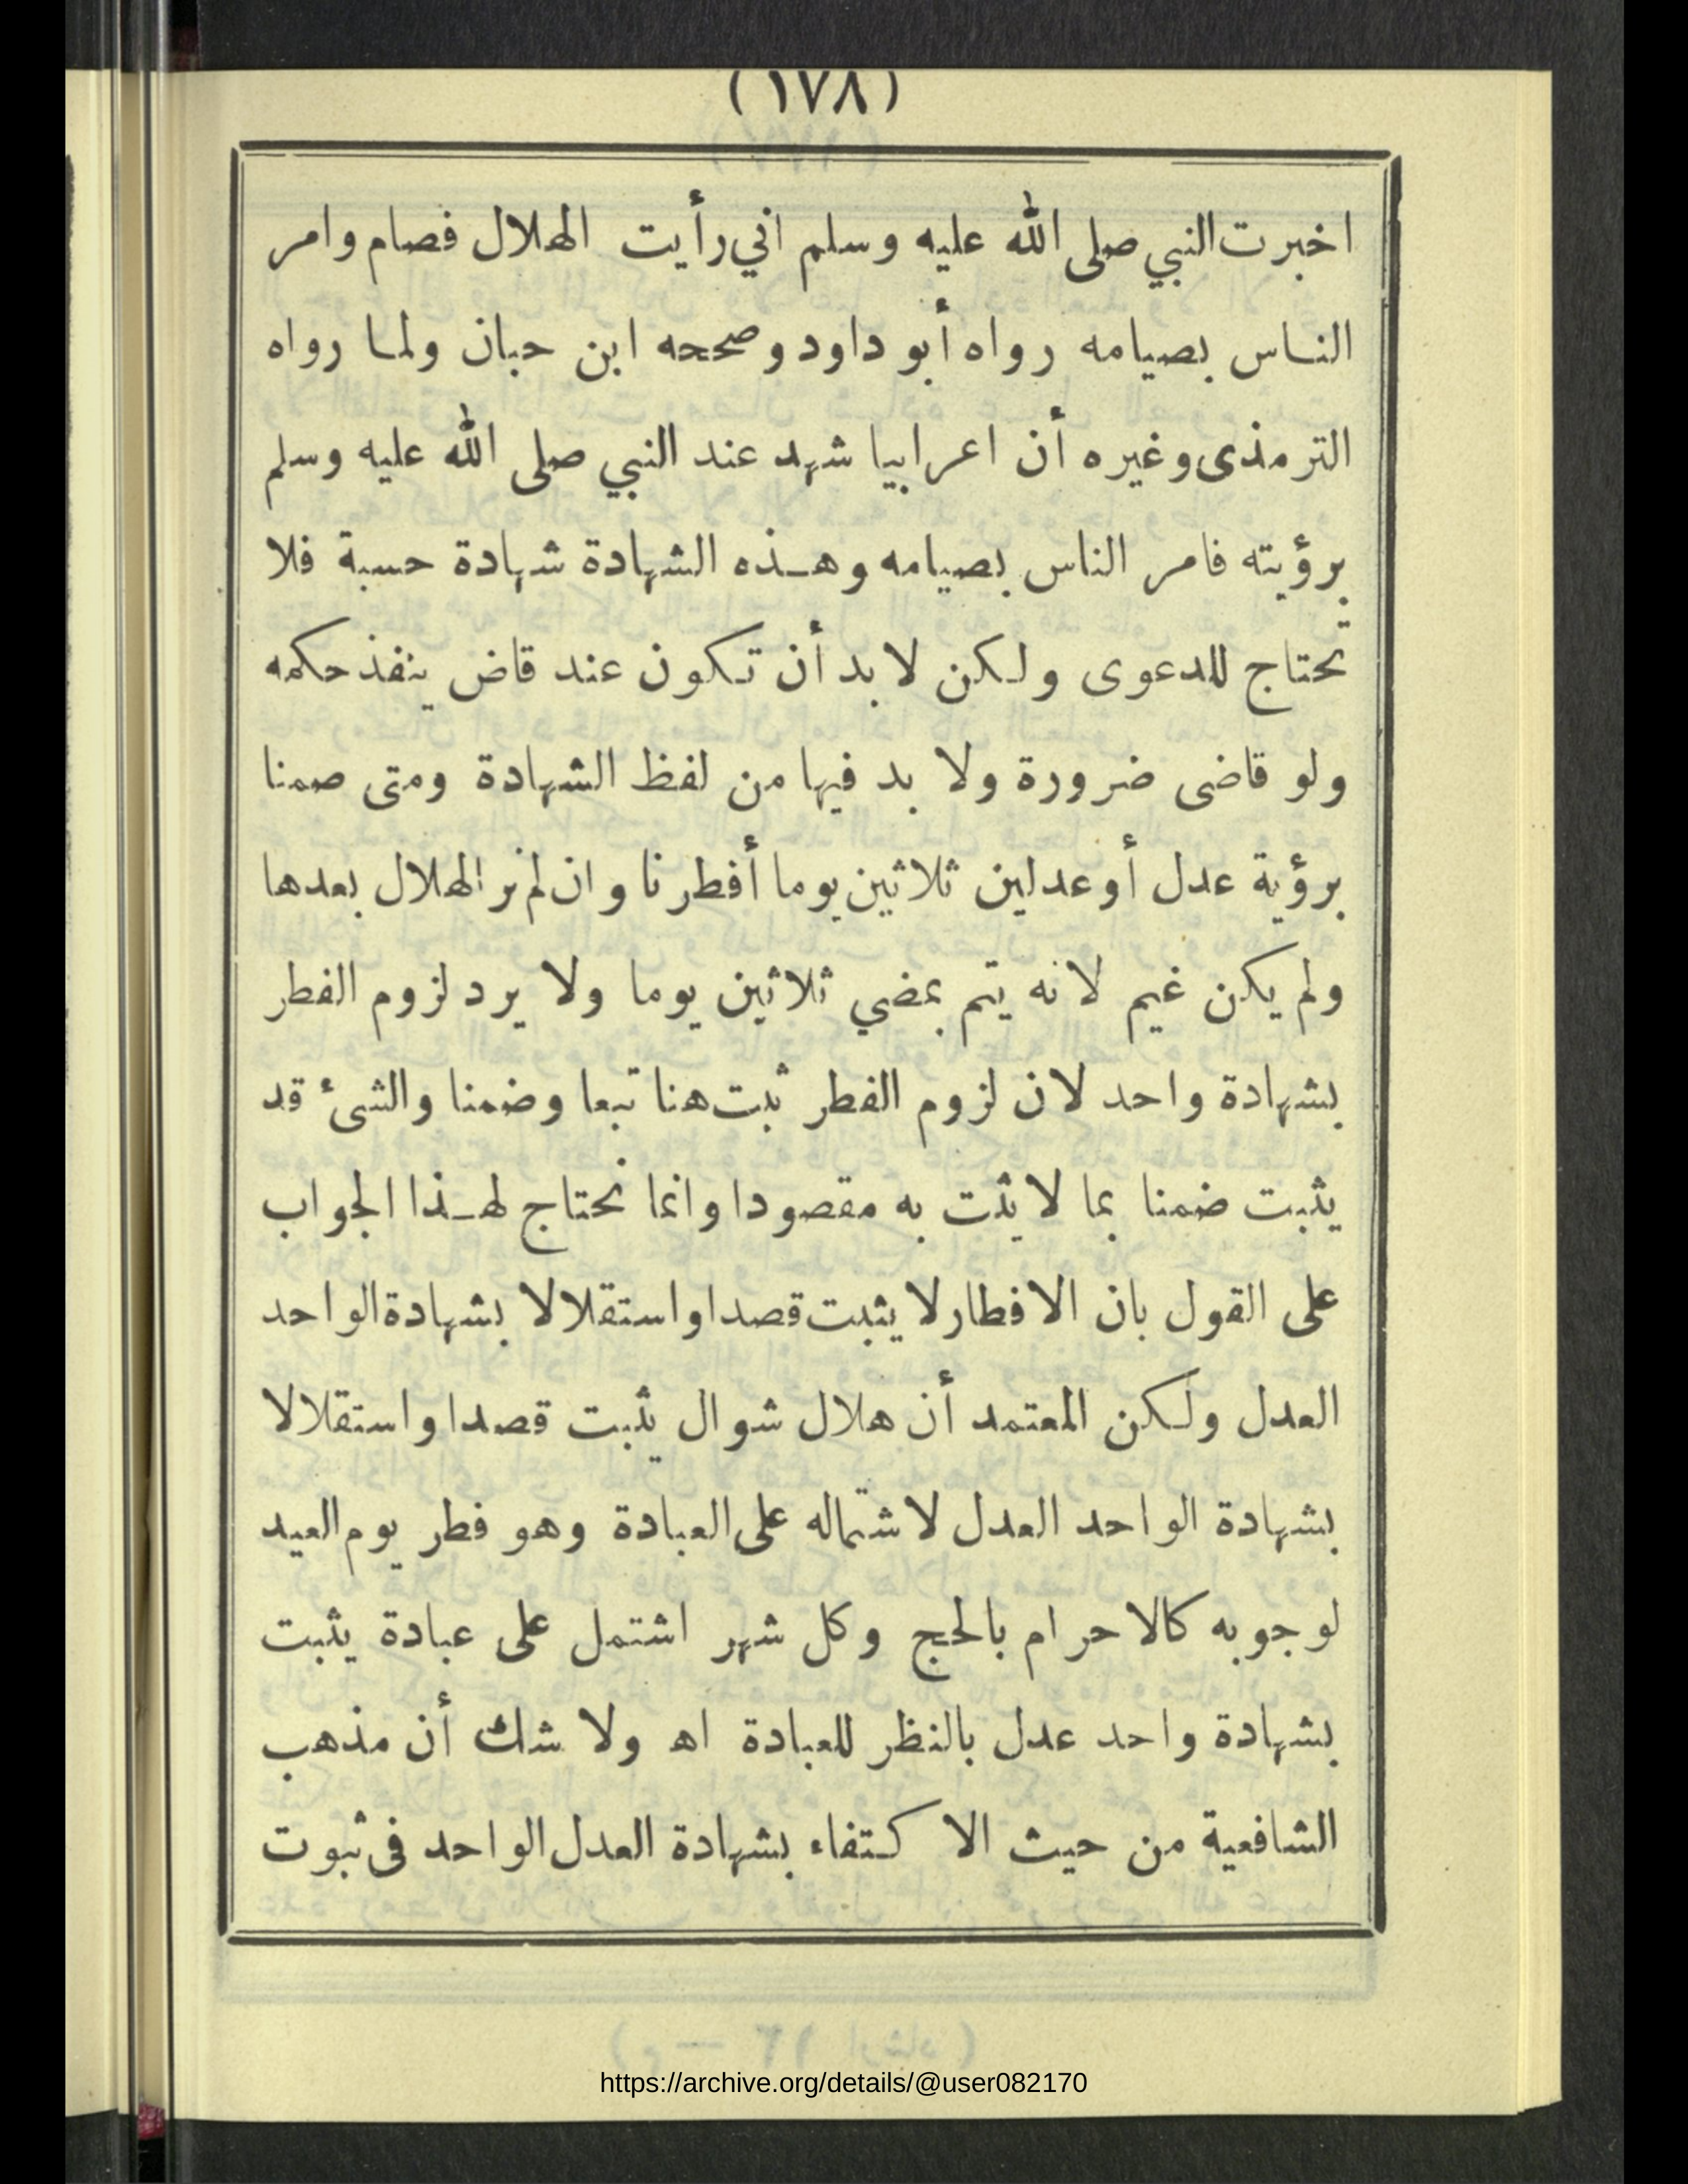 (١٧٨)
اخبرت النبي صلى الله عليه وسلم اني رأيت الهلال فصام وامر
الناس بصيامه رواه أبو داود وصححه ابن حبان ولما رواه
الترمذى وغيره أن اعرابيا شهد عند النبي صلى الله عليه وسلم
برؤيته فامر الناس بصيامه وهـذه الشهادة شهادة حسبة فلا
تحتاج للدعوى ولكن لا بد أن تكون عند قاض ينفذ حكمه
ولو قاضى ضرورة ولا بد فيها من لفظ الشهادة ومتى صمنا
برؤية عدل أو عدلين ثلاثين يوما أفطرنا وان لم نر الهلال بعدها
ولم يكن غيم لانه يتم بمضي ثلاثين يوما ولا يرد لزوم الفطر
بشهادة واحد لان لزوم الفطر ثبت هنا تبعا وضمنا والشئ قد
يثبت ضمنا بما لا يثت به مقصودا وانما نحتاج لهـذا الجواب
على القول بان الافطار لا يثبت قصدا واستقلالا بشهادة الواحد
العدل ولكن المعتمد أن هلال شوال يثبت قصدا واستقلالا
بشهادة الواحد العدل لاشتماله على العبادة وهو فطر يوم العيد
لوجوبه كالاحرام بالحج وكل شهر اشتمل على عبادة يثبت
بشهادة واحد عدل بالنظر للعبادة اه ولا شك أن مذهب
الشافعية من حيث الاكتفاء بشهادة العدل الواحد فى ثبوت
https://archive.org/details/@user082170